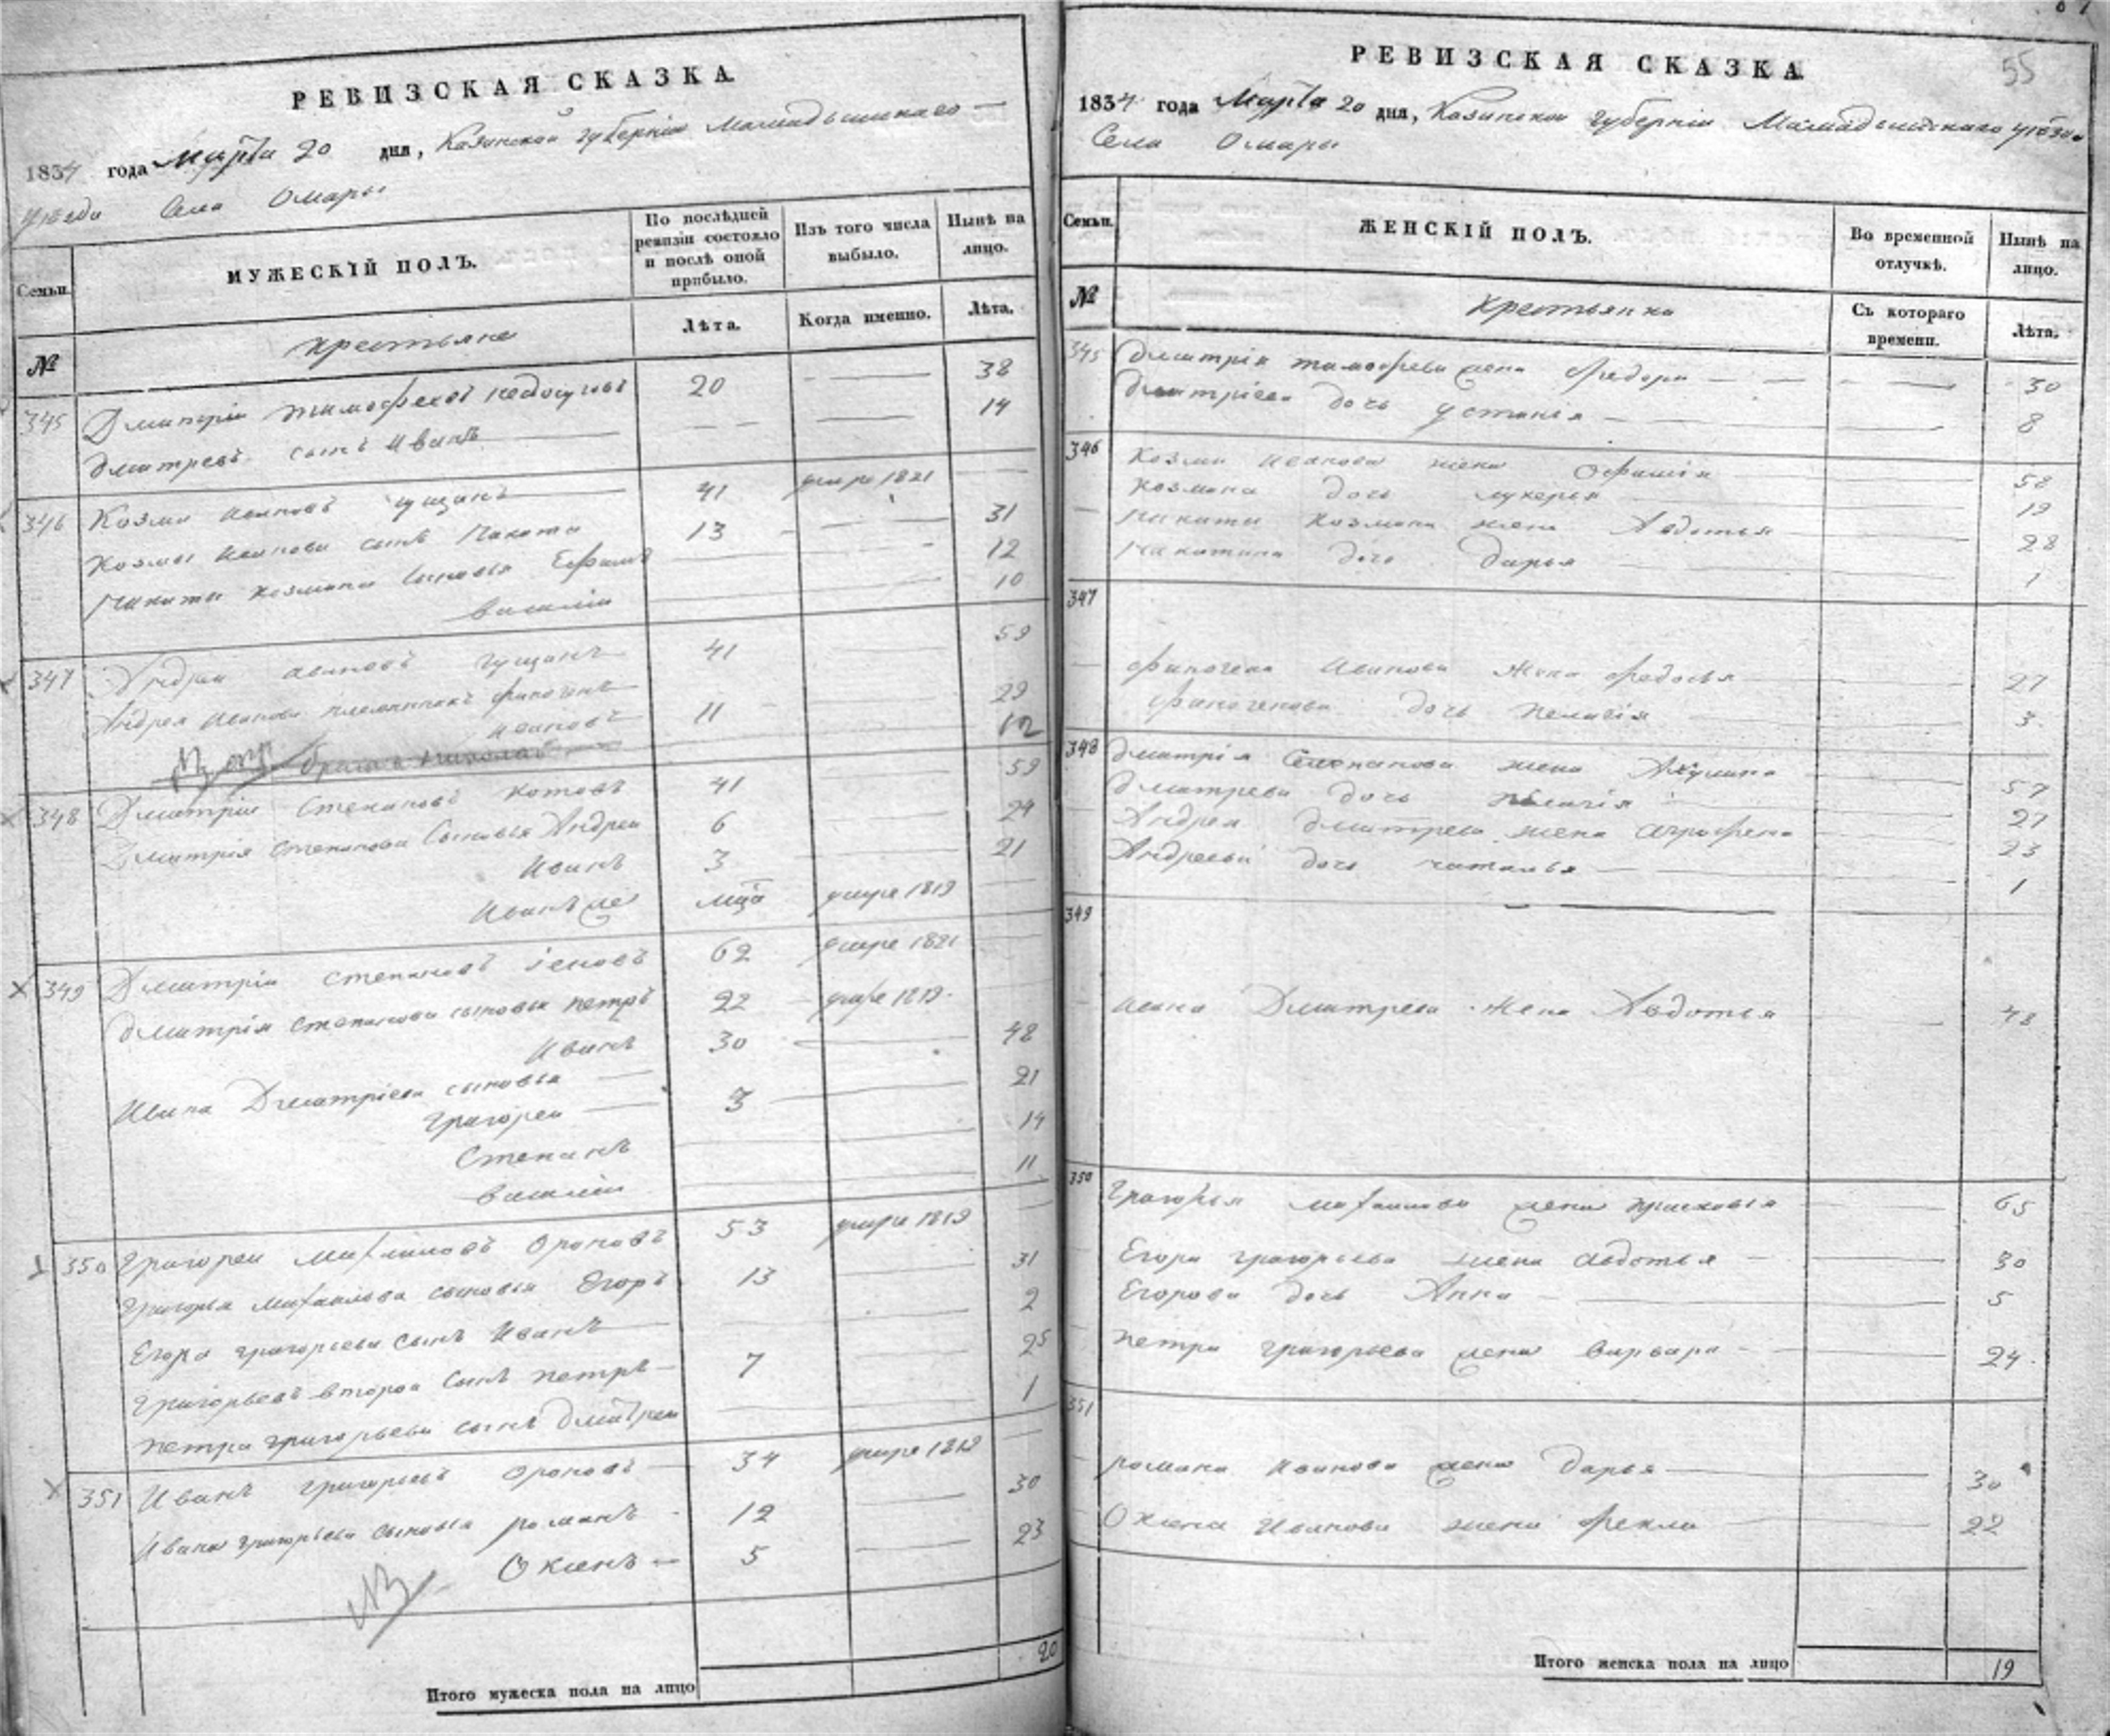 РЕВИЗСКАЯ СКАЗКА
1834 года Марта 20 дня, Казанской губернии Мамадышскаго
уезда Села Омары
Семьи.
МУЖЕСКІЙ ПОЛЪ.
По послѣдней ревизіи состояло и послѣ оной прибыло.
Изъ того числа выбыло.
Нынѣ на лицо.
№
крестьяне
Лѣта.
Когда именно.
Лѣта.
345 Дмитрій Тимофеевъ 20 38
Дмитревъ сынъ Иванъ 14
346 Козма Ивановъ гущинъ 41 умре 1821
Козмы Иванова сынъ Никита 13 31
Никиты Козмина сыновья Ефимъ 12
Василій 10
347 Андреи Ивановъ гущинъ 41 59
Андрея Иванова племянникъ финогенъ
Ивановъ 11 29
12
348 Дмитріи Степановъ котовъ 41 59
Дмитрія Степанова Сыновья Андреи 6 24
Иванъ 3 21
Иванъ же умре 1819
349 Дмитріи степановъ 62 умре 1821
Дмитрія степанова сыновья петръ 22 умре 1819
Иванъ 30 48
Ивана Дмитріева сыновья
Григореи 3 21
Степанъ 14
Василіи 11
350 Григореи михаиловъ 53 умре 1819
Григорья михаилова сыновья Егоръ 13 31
Егора григорьева сынъ Иванъ 2
Григорьевъ второи сынъ петръ 7 25
петра григорьева сынъ Дмитреи 1
351 Иванъ григорьевъ 34 умре
Ивана григорьева сыновья романъ 12 30
5 23
Итого мужеска пола на лицо 20
55
РЕВИЗСКАЯ СКАЗКА
1834 года Марта 20 дня, Казанской губерніи Мамадышскаго уезда
Села Омары
Семьи.
ЖЕНСКІЙ ПОЛЪ.
Во временной отлучкѣ.
Нынѣ на лицо.
№
крестьянки
Съ котораго времени.
Лѣта.
345 Дмитрія тимофеева жена федора 30
Дмитріева дочь устинія 8
346 Козмы Иванова жена 58
Козмина дочь лукерья 19
Никиты Козмина жена Авдотья 28
Никитина дочь Дарья 1
347
финогена Иванова жена федосья 27
финогенова дочь пелагія 3
348 Дмитрія Степанова жена Акулина 57
Дмитрева дочь пелагія 27
Андрея Дмитрева жена аграфена 23
Андреева дочь наталья 1
349
Ивана Дмитрева жена Авдотья 48
350 Григорья михаилова жена прасковья 65
Егора григорьева жена авдотья 30
Егорова дочь Анна 5
петра григорьева жена варвара 24
351
романа Иванова жена дарья 30
Иванова жена фекла 22
Итого женска пола на лицо 19